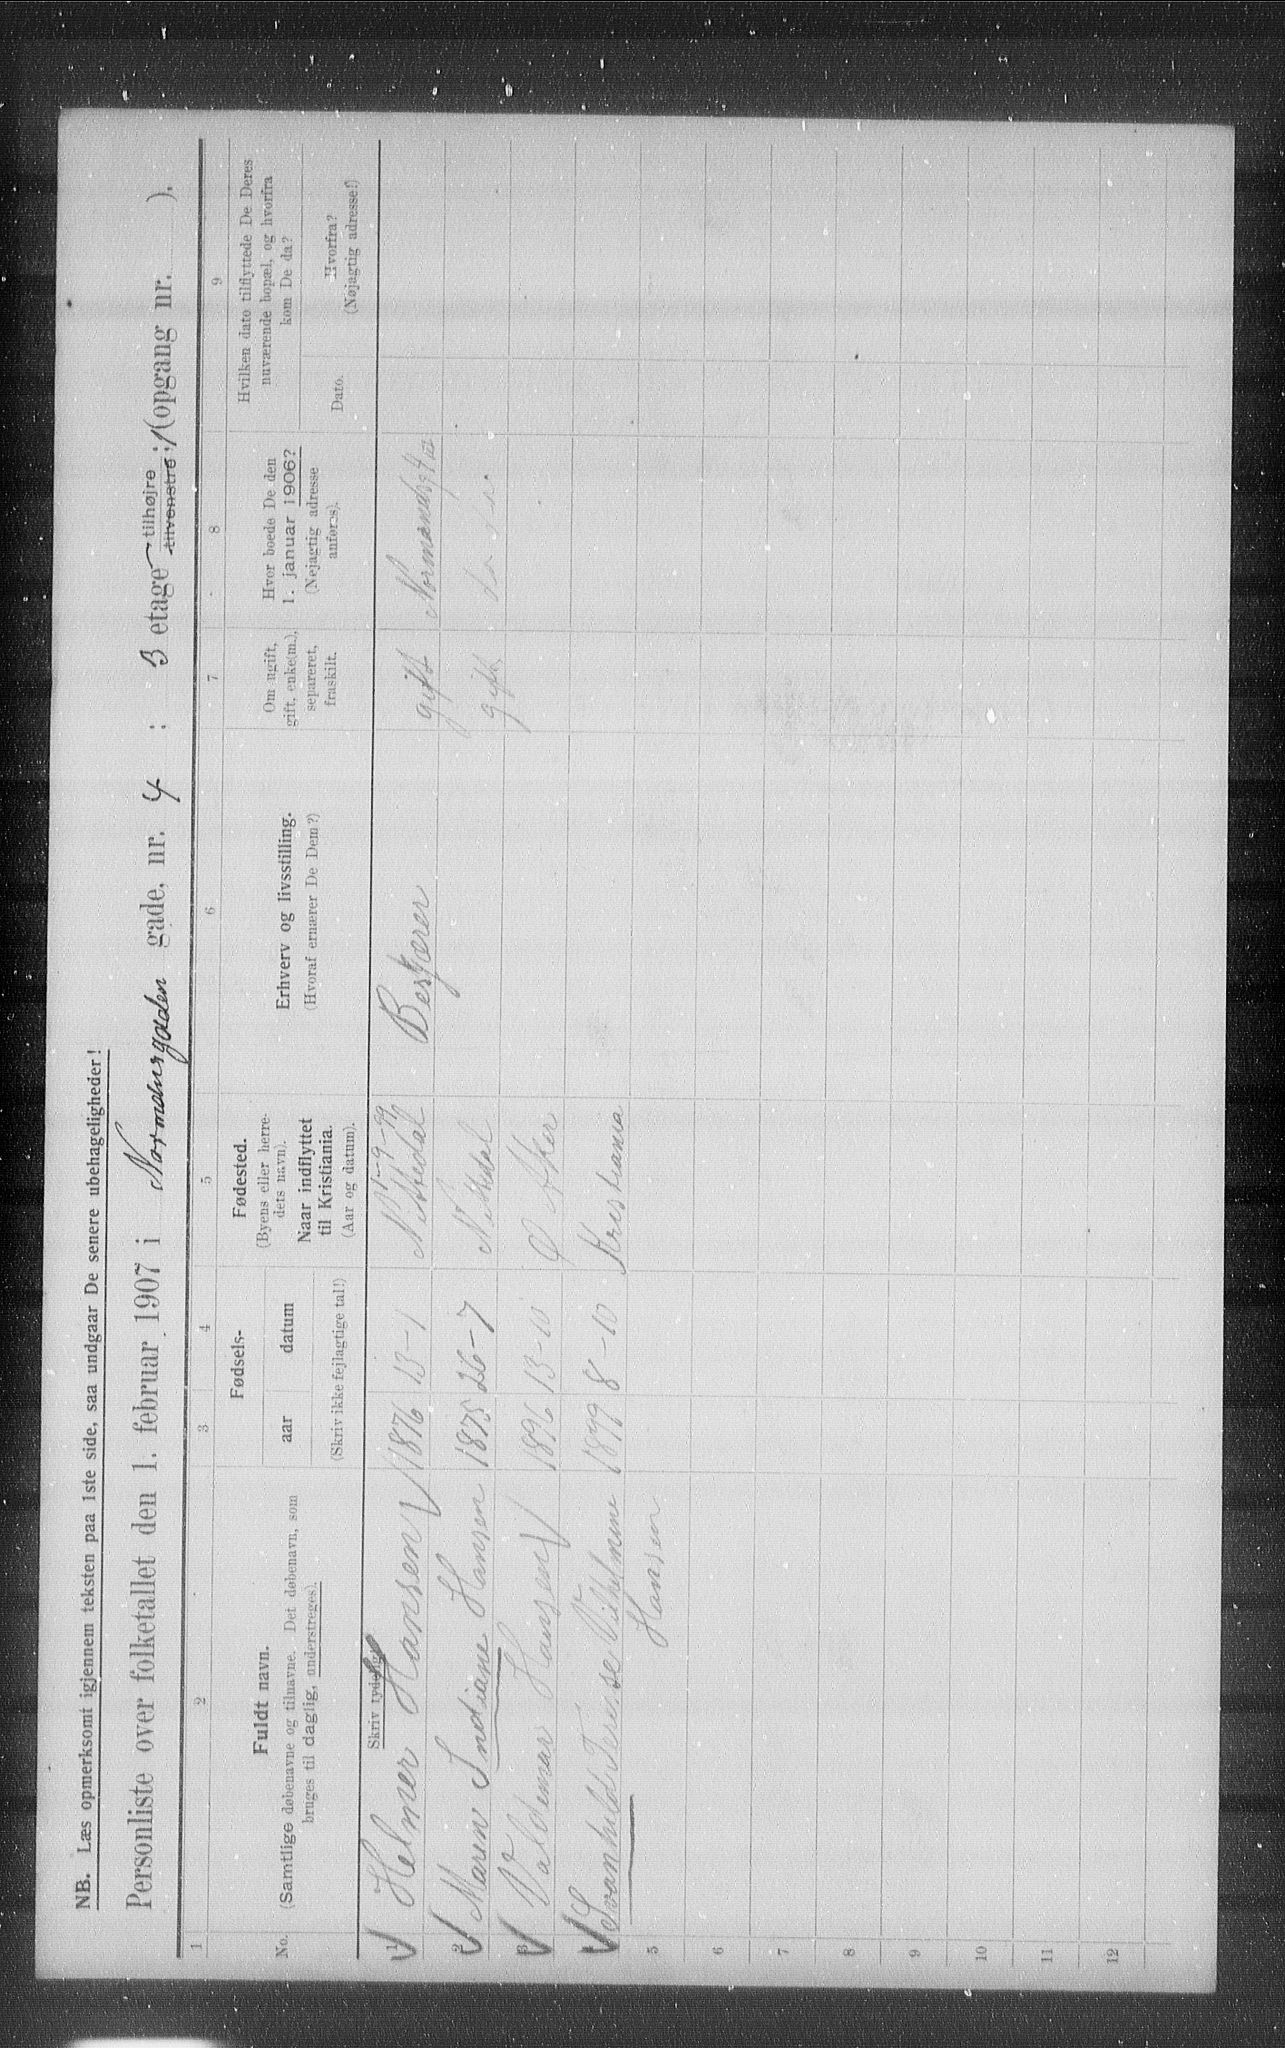 NB. Læs opmerksomt igjennem teksten paa 1ste side, saa undgaar De senere ubehageligheder!
Personliste over folketallet den 1. februar 1907 i Normansgaden gade, nr. 4 : 3 etage tilhøjre tilvenstre ; (opgang nr. ).
1 2 3 4 5 6 7 8 9
No.
Fuldt navn.
(Samtlige døbenavne og tilnavne. Det døbenavn, som
bruges til daglig, understreges).
Fødsels-
aar datum
(Skriv ikke fejlagtige tal!)
Fødested.
(Byens eller herre-
dets navn).
Naar indflyttet
til Kristiania.
(Aar og datum).
Erhverv og livsstilling.
(Hvoraf ernærer De Dem?)
Om ugift,
gift, enke(m.),
separeret,
fraskilt.
Hvor boede De den
1. januar 1906?
(Nøjagtig adresse
anføres).
Hvilken dato tilflyttede De Deres
nuværende bopæl, og hvorfra
kom De da?
Dato.
Hvorfra?
(Nøjagtig adresse!)
Skriv tydelig!
1 Helmer Hansen 1876 13-1 1-9-99 Nittedal gift
2 Maren Indiane Hansen 1875 26-7 Nittedal gift
3 Valdemar Hansen 1896 13-10 Ø Aker
4 Svanhild Terese Vilhelmine 1899 8-10 Kristiania
Hansen
5
6
7
8
9
10
11
12